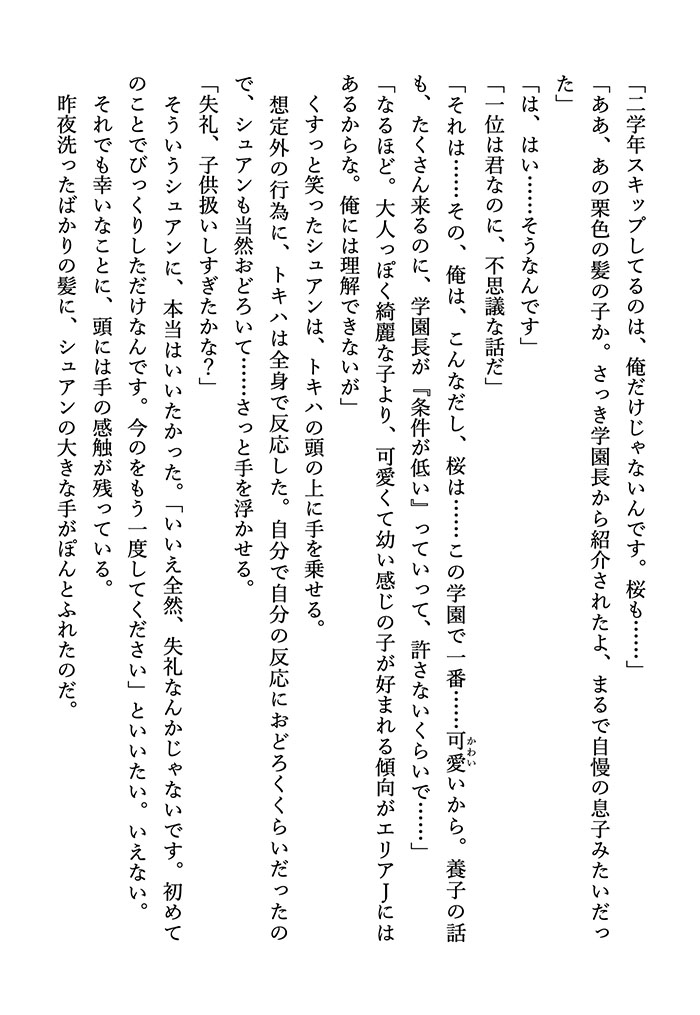 「二学年スキップしてるのは、俺だけじゃないんです。桜も……」
「ああ、あの栗色の髪の子か。さっき学園長から紹介されたよ、まるで自慢の息子みたいだっ
た」
「は、はい……そうなんです」
「一位は君なのに、不思議な話だ」
「それは……その、俺は、こんなだし、桜は……この学園で一番……可愛いから。養子の話
かわい
も、たくさん来るのに、学園長が『条件が低い』っていって、許さないくらいで……」
「なるほど。大人っぽく綺麗な子より、可愛くて幼い感じの子が好まれる傾向がエリアＪには
あるからな。俺には理解できないが」
くすっと笑ったシュアンは、トキハの頭の上に手を乗せる。
想定外の行為に、トキハは全身で反応した。自分で自分の反応におどろくくらいだったの
で、シュアンも当然おどろいて……さっと手を浮かせる。
「失礼、子供扱いしすぎたかな？」
そういうシュアンに、本当はいいたかった。「いいえ全然、失礼なんかじゃないです。初めて
のことでびっくりしただけなんです。今のをもう一度してください」といいたい。いえない。
それでも幸いなことに、頭には手の感触が残っている。
昨夜洗ったばかりの髪に、シュアンの大きな手がぽんとふれたのだ。